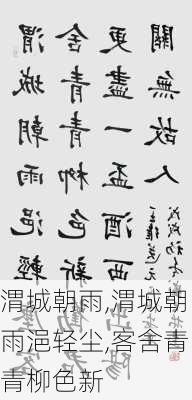 渭城朝雨浥輕
舍青青柳色新
更盡一盃酒西
關無故人
王維送元
渭城朝雨,渭城朝
雨浥轻尘,客舍青
青柳色新